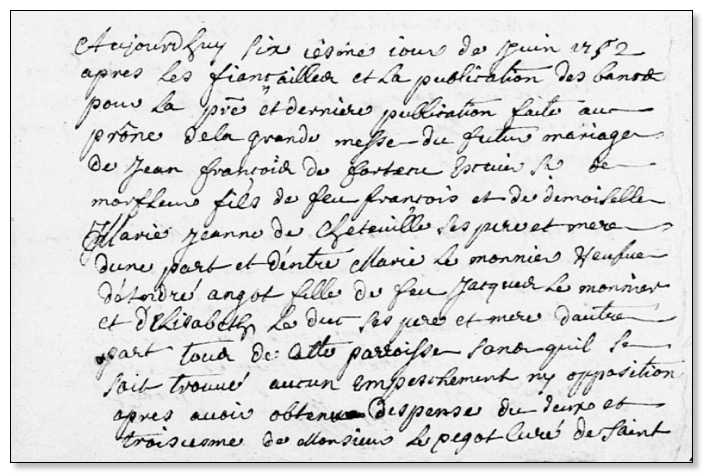 Aujourdhuy six iesme iour de Juin 1752
apres les fiancailles et la publication des bancs
pour la pre et derniere publication faite au
prône de la grande messe du futur mariage
de Jean françois de fortecu Escuier Sr de
morfleur fils de feu francois et de demoiselle
Marie Jeanne de Cheteville ses pere et mere
dune part et dentre Marie le monnier Veufve
dandré angot fille de feu Jacques le monnier
et d'Elisabeth le duc ses pere et mere dautre
part tous de cette parroisse sans quil se
soit trouvé aucun Empeschement ny opposition
apres auoir obtenu Dispense du deux et
troisiesme de Monsieur le pegot Curé de Saint